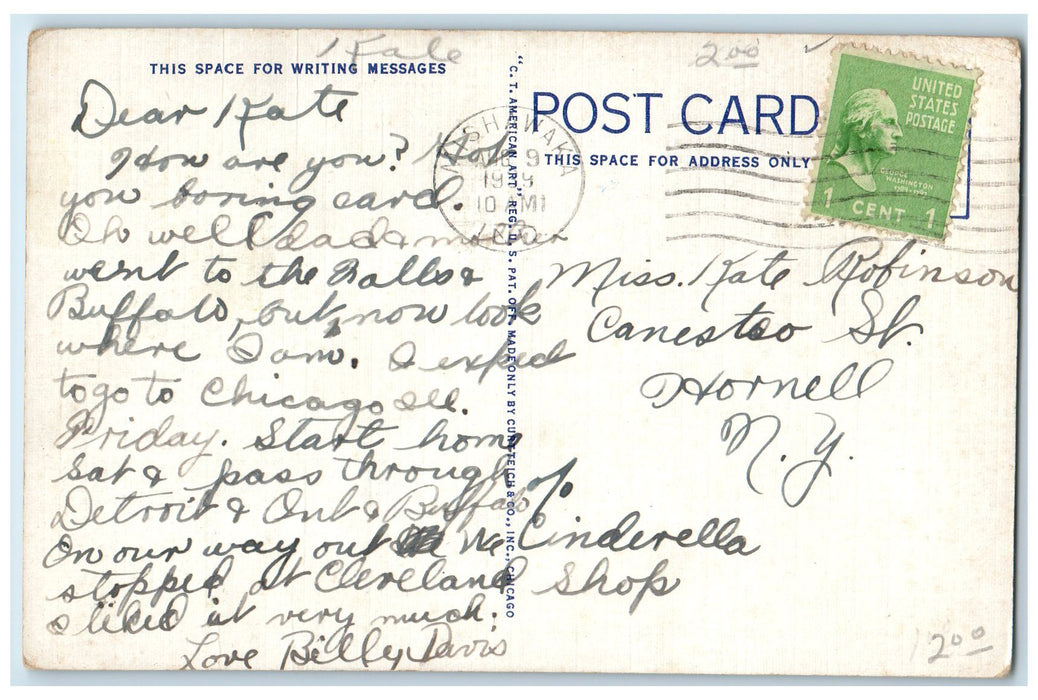 Kate
2.00
THIS SPACE FOR WRITING MESSAGES
Dear Kate
How are you?
you boring card.
Oh well dad & mother
went to the Falls &
Buffalo, but, now look
where I am. I expect
to go to Chicago Ill.
Friday. Start home
Sat & pass through
Detroit & Ont & Buffalo
On our way out We
stopped at Cleveland
I liked it very much.
Love Billy Davis
"C. T. AMERICAN ART" REG. U. S. PAT. OFF. MADE ONLY BY CURT TEICH & CO., INC., CHICAGO
POST CARD
THIS SPACE FOR ADDRESS ONLY
MISHAWAKA
9
10 AM
IND.
UNITED
STATES
POSTAGE
GEORGE
WASHINGTON
1789-1797
1 CENT 1
Miss. Kate Robinson
Canesteo St.
Hornell
N.Y.
%
Cinderella
Shop
200